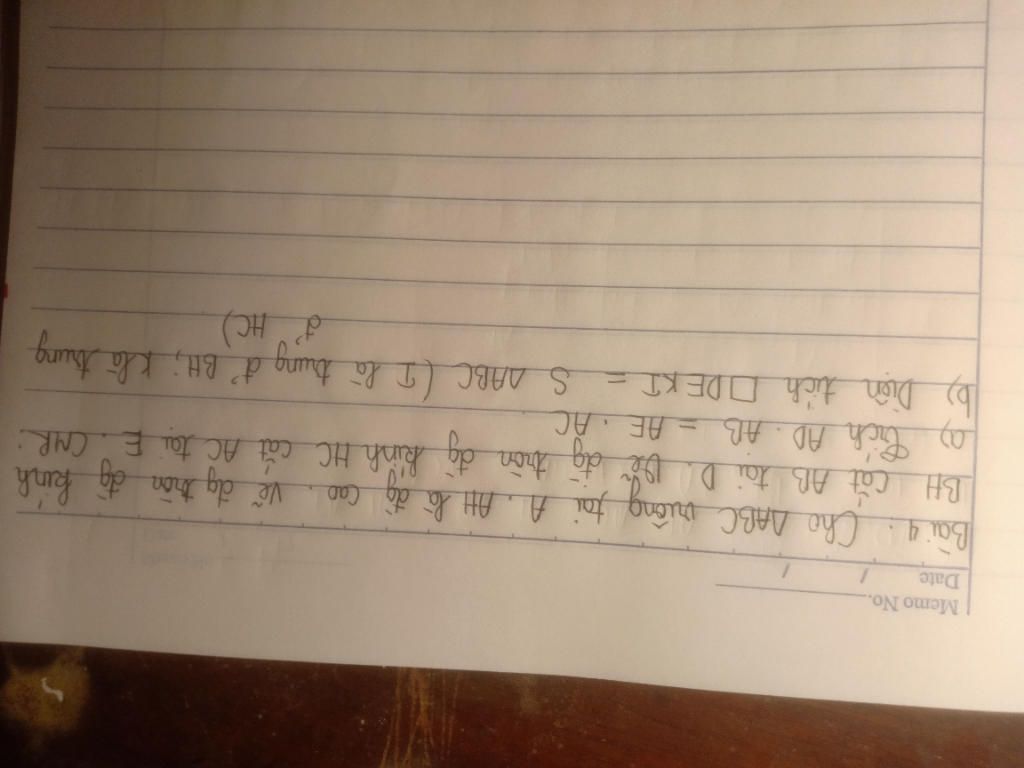 Memo No.
Date / /
Bài 4. Cho △ABC vuông tại A. AH là đg cao. Vẽ đg tròn đg kính
BH cắt AB tại D. Vẽ đg tròn đg kính HC cắt AC tại E. CMR:
a) tích AD. AB = AE. AC
b) Diện tích □DEKI = S △ABC (I là trung đ' BH; K là trung
đ' HC)